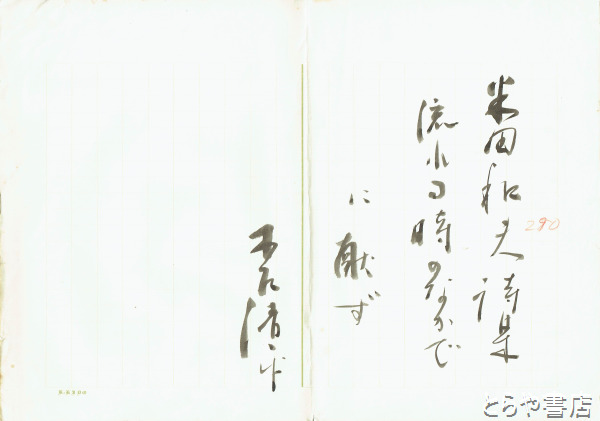 米田和夫詩集
流れる時のなかで
に献ず
290
とらや書店